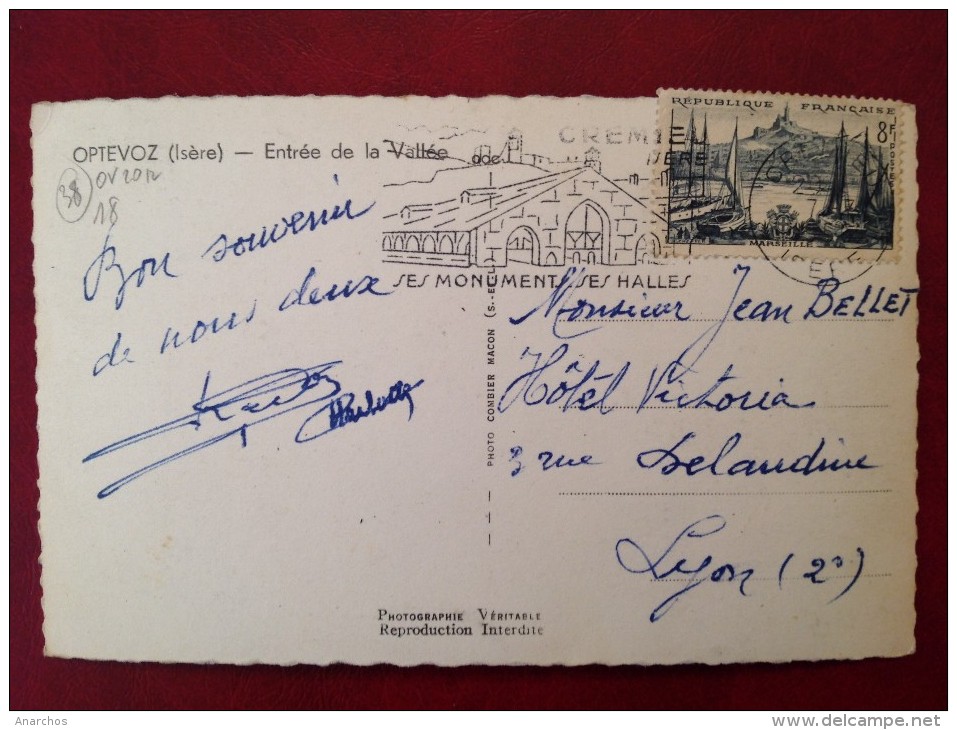 OPTEVOZ (Isère) — Entrée de la Vallée
38
OV2012
18
doc
CREMIEU
ISERE
SES MONUMENTS SES HALLES
RÉPUBLIQUE FRANÇAISE
8F
POSTES
MARSEILLE
Bon souvenir
de nous deux
PHOTO COMBIER MACON (S.-ET-L.)
Monsieur Jean BELLET
Hôtel Victoria
3 rue Delandine
Lyon (2°)
PHOTOGRAPHIE VÉRITABLE
Reproduction Interdite
Anarchos
www.delcampe.net